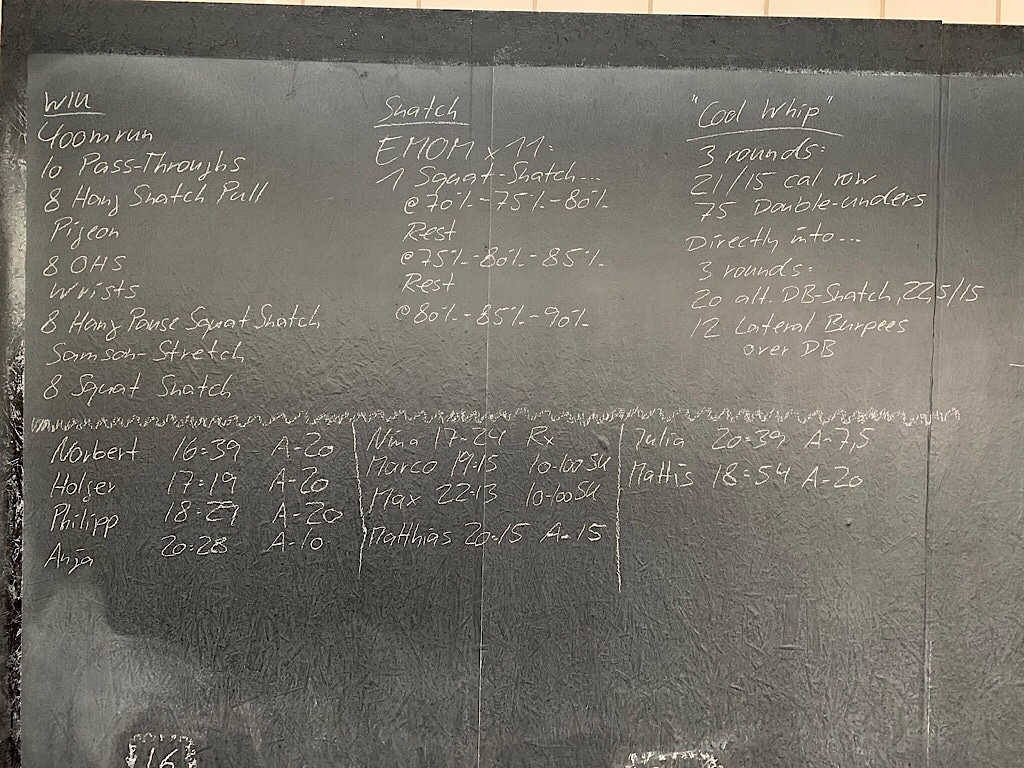 WIU
400m run
10 Pass-Throughs
8 Hang Snatch Pull
Pigeon
8 OHS
Wrists
8 Hang Pause Squat Snatch
Samson-Stretch
8 Squat Snatch
Snatch
EMOM x 11:
1 Squat-Snatch...
@70%-75%-80%
Rest
@75%-80%-85%
Rest
@80%-85%-90%
"Cool Whip"
3 rounds:
21/15 cal row
75 Double-unders
Directly into...
3 rounds:
20 alt. DB-Snatch, 22,5/15
12 Lateral Burpees
over DB
Norbert 16:39 A-20
Holger 17:19 A-20
Philipp 18:27 A-20
Anja 20:28 A-10
Nina 17:24 Rx
Marco 19:15 10-100SU
Max 22:13 10-100SU
Matthias 20:15 A-15
Julia 20:39 A-7,5
Mattis 18:54 A-20
16